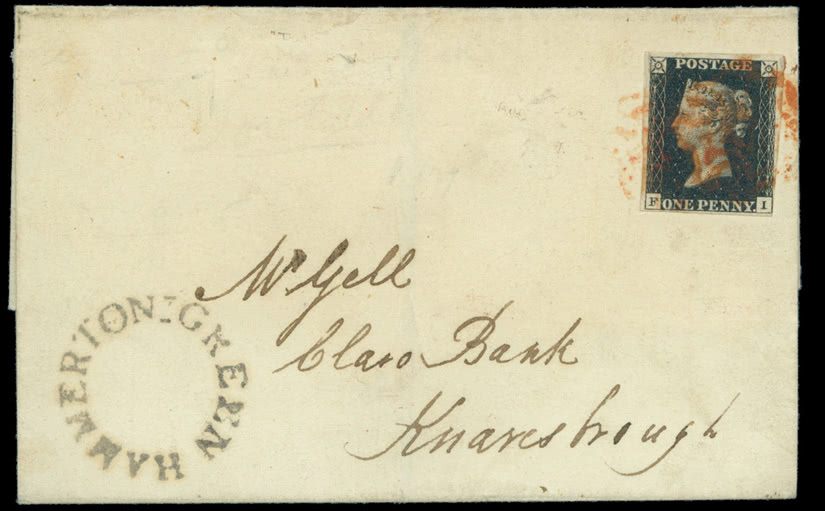 POSTAGE
F ONE PENNY. I
Mr Gell
Claro Bank
Knaresbrough
HAMMERTON-GREEN